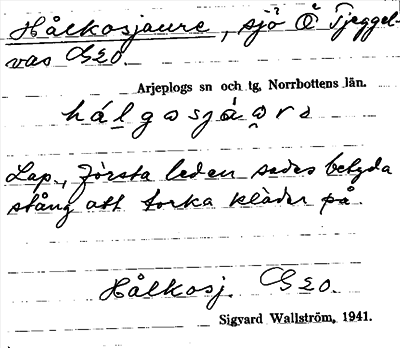 Hålkosjaure, sjö Ö Tjeggel-
vas GEO.
Arjeplogs sn och tg, Norrbottens län.
hálgosjáo̯rə
Lap., första leden sades betyda
stång att torka kläder på.
Hålkosj. GEO.
Sigvard Wallström, 1941.